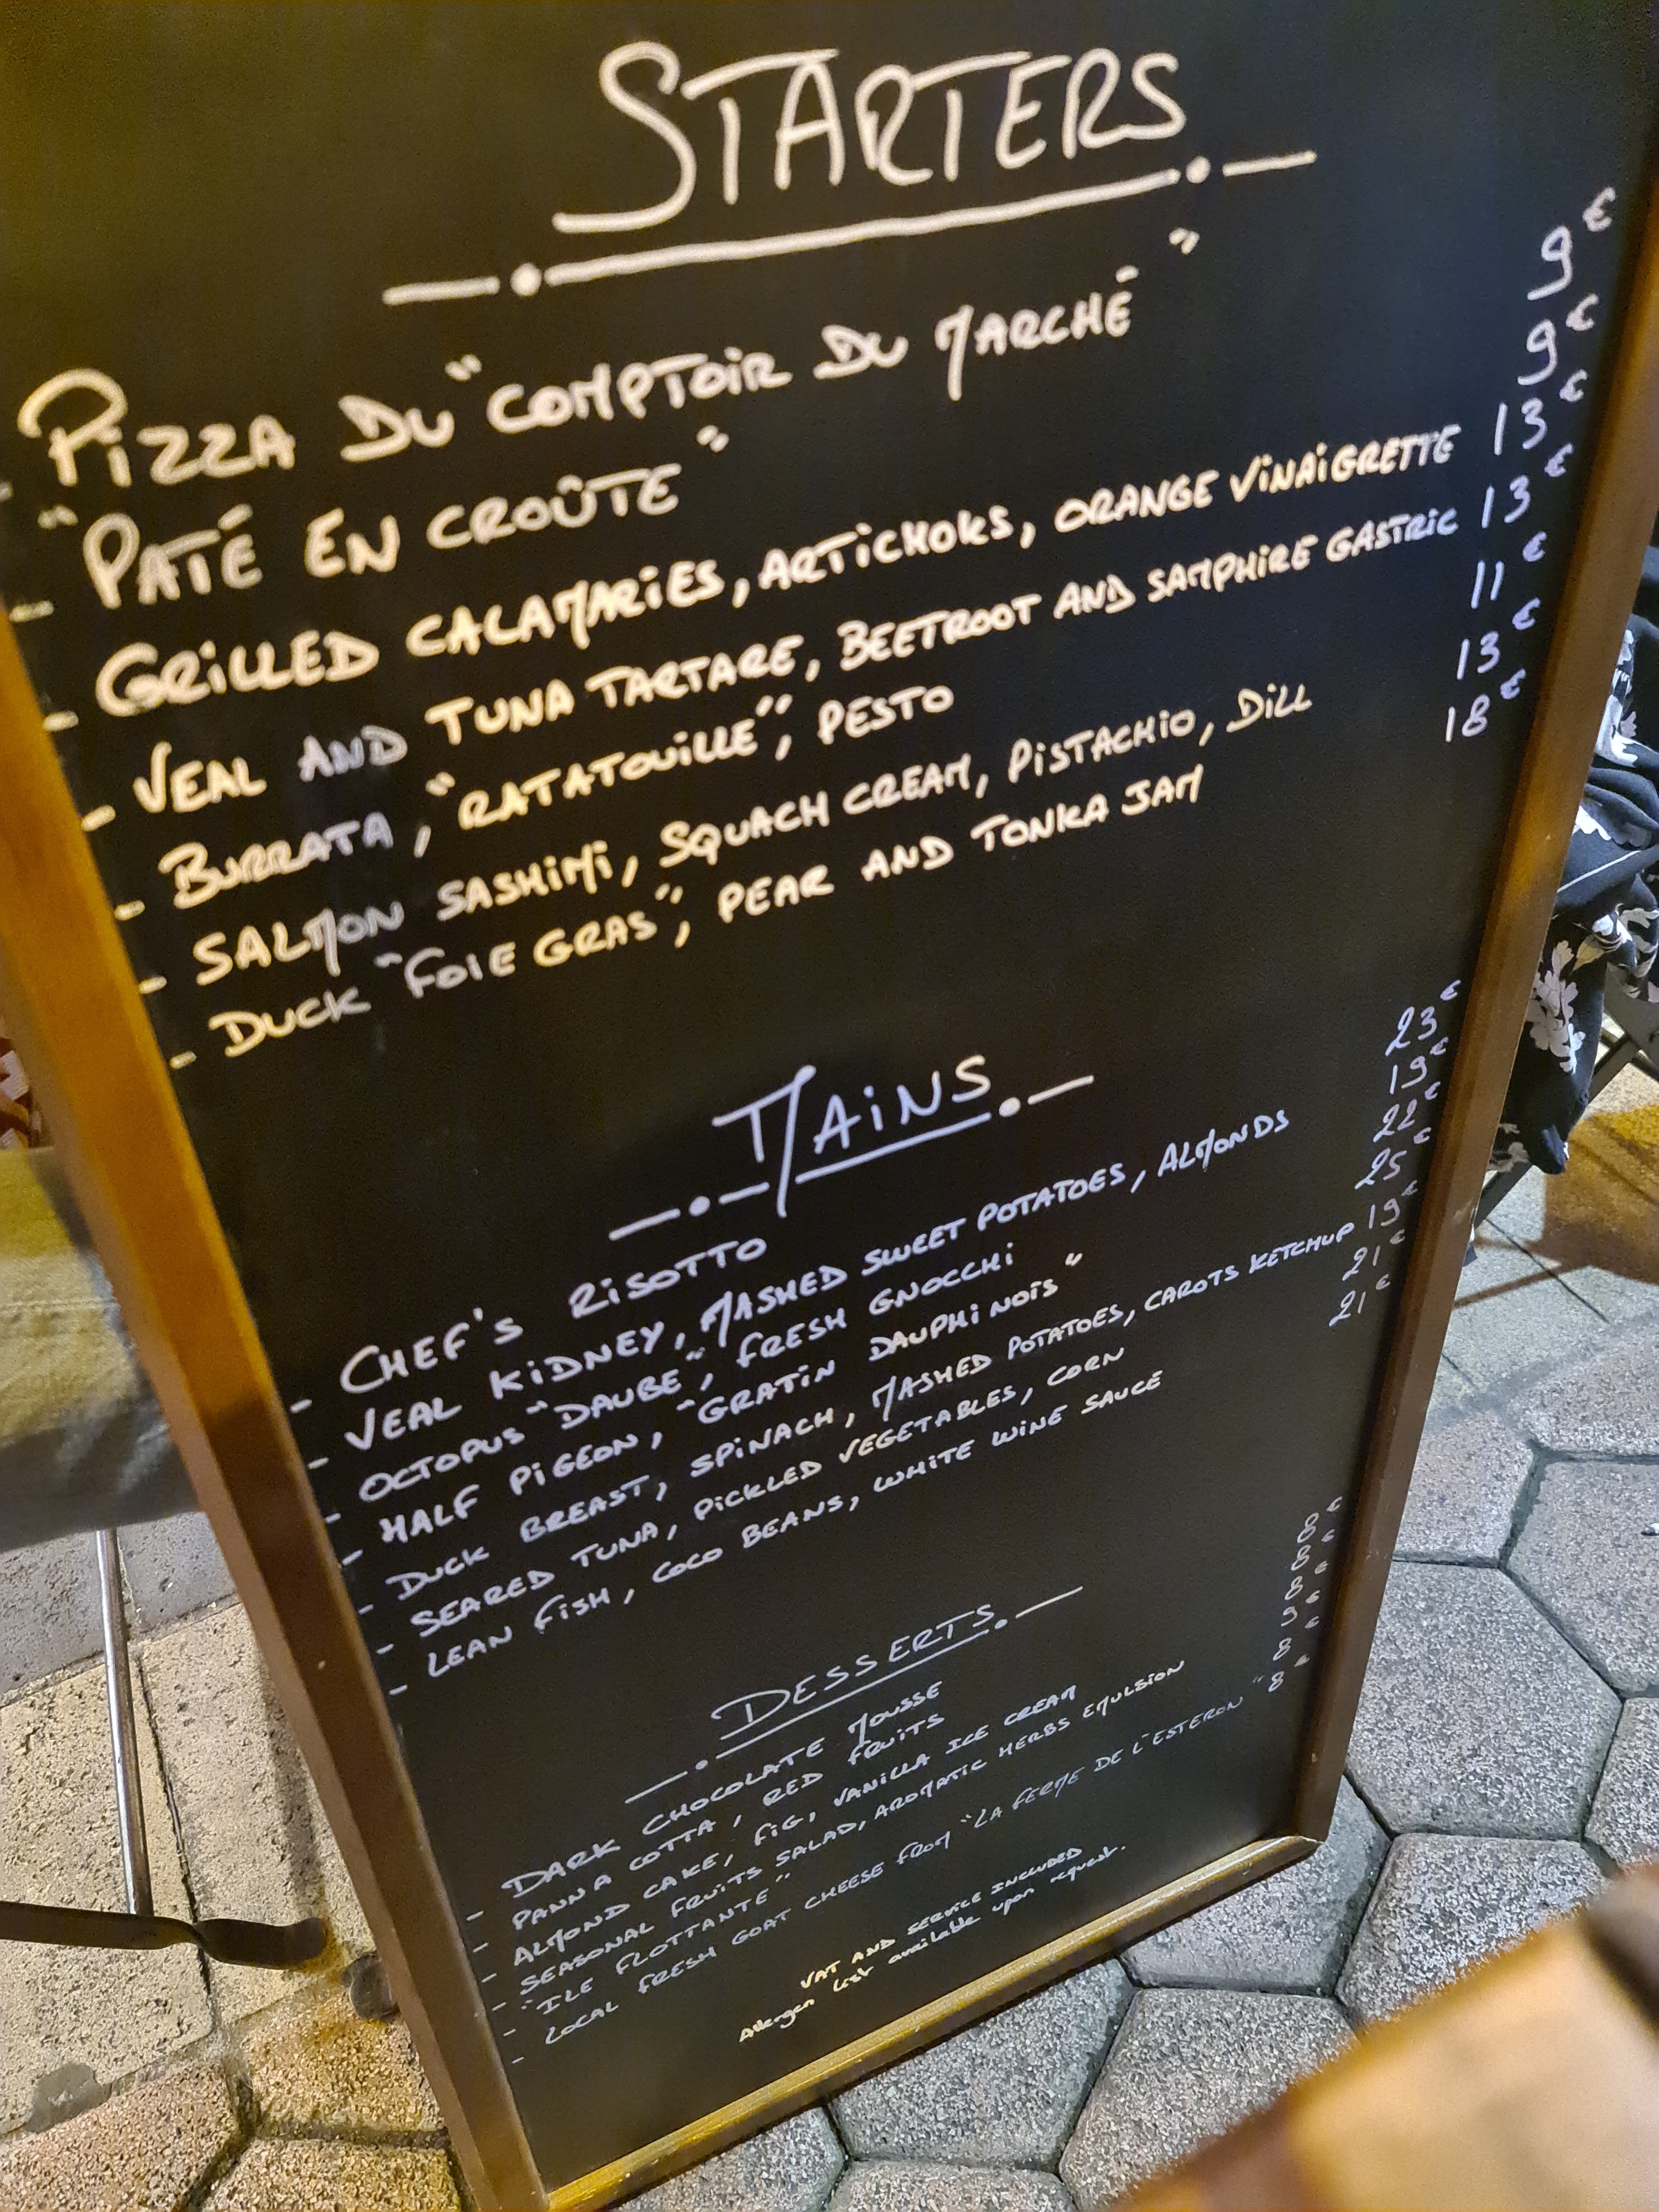 STARTERS
- PIZZA DU "COMPTOIR DU MARCHÉ" 9€
- "PATÉ EN CROÛTE" 9€
- GRILLED CALAMARIES, ARTICHOKS, ORANGE VINAIGRETTE 13€
- VEAL AND TUNA TARTARE, BEETROOT AND SAMPHIRE GASTRIC 13€
- BURRATA, "RATATOUILLE", PESTO 11€
- SALMON SASHIMI, SQUACH CREAM, PISTACHIO, DILL 13€
- DUCK "FOIE GRAS", PEAR AND TONKA JAM 18€
MAINS
- CHEF'S RISOTTO 23€
- VEAL KIDNEY, MASHED SWEET POTATOES, ALMONDS 19€
- OCTOPUS "DAUBE", FRESH GNOCCHI 22€
- HALF PIGEON, "GRATIN DAUPHINOIS" 25€
- DUCK BREAST, SPINACH, MASHED POTATOES, CAROTS KETCHUP 19€
- SEARED TUNA, PICKLED VEGETABLES, CORN 21€
- LEAN FISH, COCO BEANS, WHITE WINE SAUCE 21€
DESSERTS
- DARK CHOCOLATE MOUSSE 8€
- PANNA COTTA, RED FRUITS 8€
- ALMOND CAKE, FIG, VANILLA ICE CREAM 8€
- SEASONAL FRUITS SALAD, AROMATIC HERBS EMULSION 9€
- "ILE FLOTTANTE" 8€
- LOCAL FRESH GOAT CHEESE FROM "LA FERME DE L'ESTERON" 8€
VAT AND SERVICE INCLUDED
Allergen list available upon request.